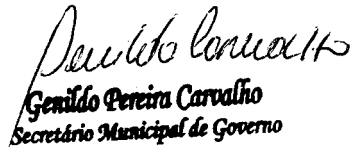 Genildo Carvalho
Genildo Pereira Carvalho
Secretário Municipal de Governo